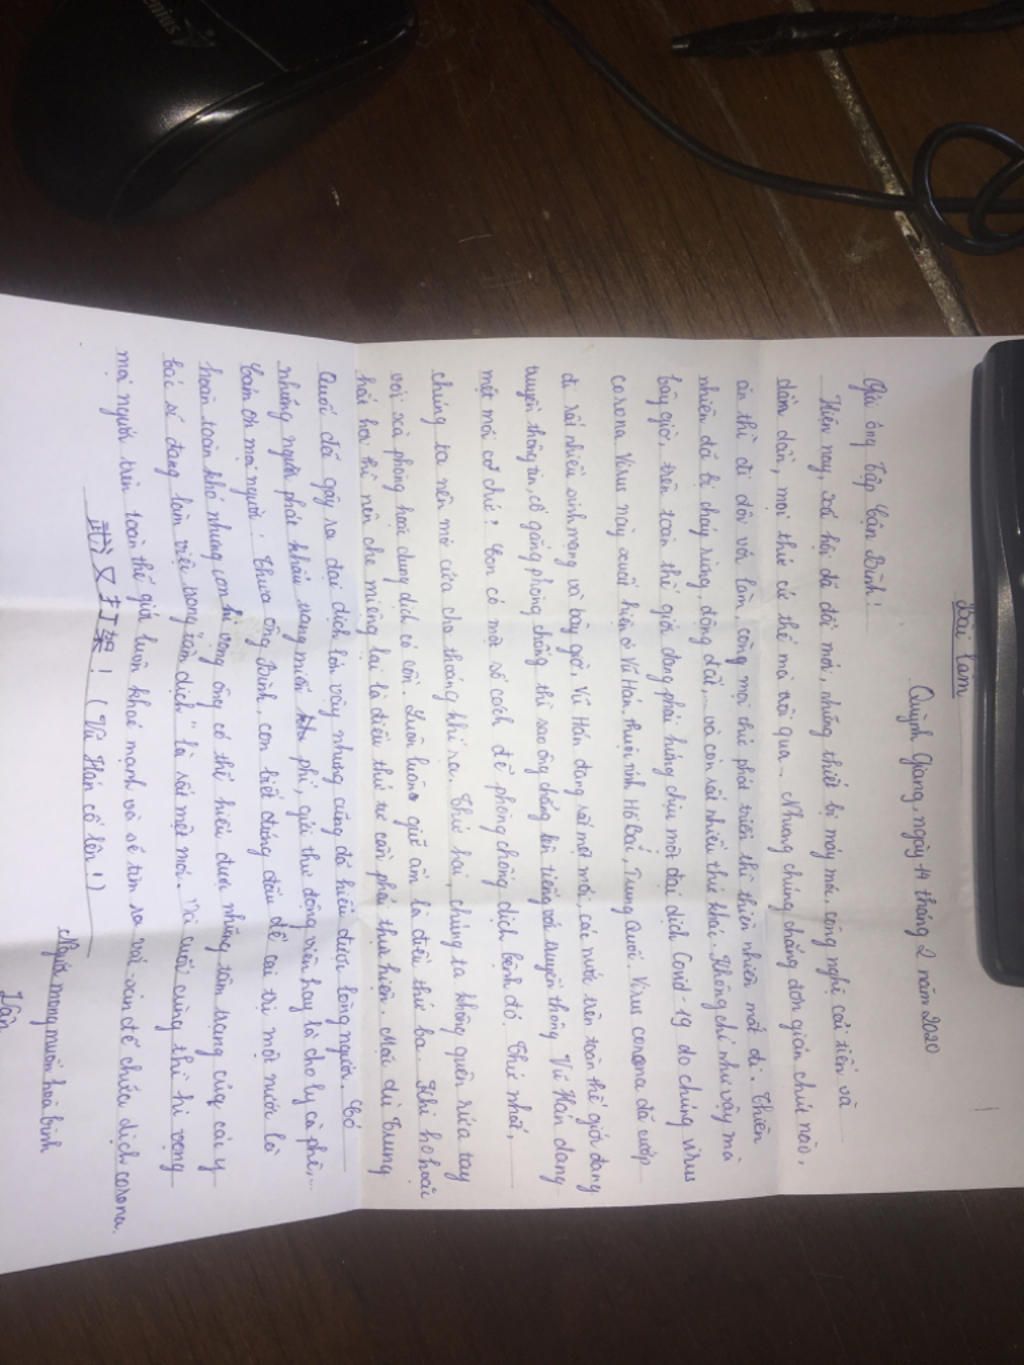 Genius
Bài làm
Quỳnh Giang, ngày 14 tháng 2 năm 2020
Gửi ông Tập Cận Bình!
Hiện nay, xã hội đã đổi mới, những thiết bị máy móc, công nghệ cải tiến và
dần dần, mọi thứ cứ thế mà trôi qua. Nhưng chúng chẳng đơn giản chút nào,
ăn thì đi đôi với làm, còng mọi thứ phát triển thì thiên nhiên mất đi. Thiên
nhiên đã bị cháy rừng, động đất,... và còn rất nhiều thứ khác. Không chỉ như vậy mà
bây giờ, trên toàn thế giới đang phải hứng chịu một đại dịch Covid-19 do chúng virus
corona. Virus này xuất hiện ở Vũ Hán, thuộc tỉnh Hồ Bắc, Trung Quốc. Virus corona đã cướp
đi rất nhiều sinh mạng và bây giờ, Vũ Hán đang rất mệt mỏi, các nước trên toàn thế giới đang
truyền thông tin, cố gắng phòng chống thì sao ông chẳng lên tiếng với truyền thông Vũ Hán đang
mệt mỏi cơ chứ? Con có một số cách để phòng chống dịch bệnh đó. Thứ nhất,
chúng ta nên mở cửa cho thoáng khí ra. Thứ hai, chúng ta không quên rửa tay
với xà phòng hoặc dung dịch có cồn. Luôn luôn giữ ấm là điều thứ ba. Khi ho hoặc
hắt hơi thì nên che miệng lại là điều thứ tư cần phải thực hiện. Mặc dù Trung
Quốc đã gây ra đại dịch lớn vậy nhưng cũng đã hiểu được lòng người. Có
những người phát khẩu trang miễn phí, gửi thư động viên hay là cho ly cà phê,...
cảm ơn mọi người. Thưa ông Bình, con biết đứng đầu để cai trị một nước là
hoàn toàn khó nhưng con hi vọng ông có thể hiểu được những tâm trạng của các y
bác sĩ đang làm việc trong "tâm dịch" là rất mệt mỏi. Và cuối cùng thì hi vọng
mọi người trên toàn thế giới luôn khoẻ mạnh và sẽ tìm ra vắc-xin để chữa dịch corona.
武汉又打架! (Vũ Hán cố lên!)
Người mong muốn hoà bình
Vân